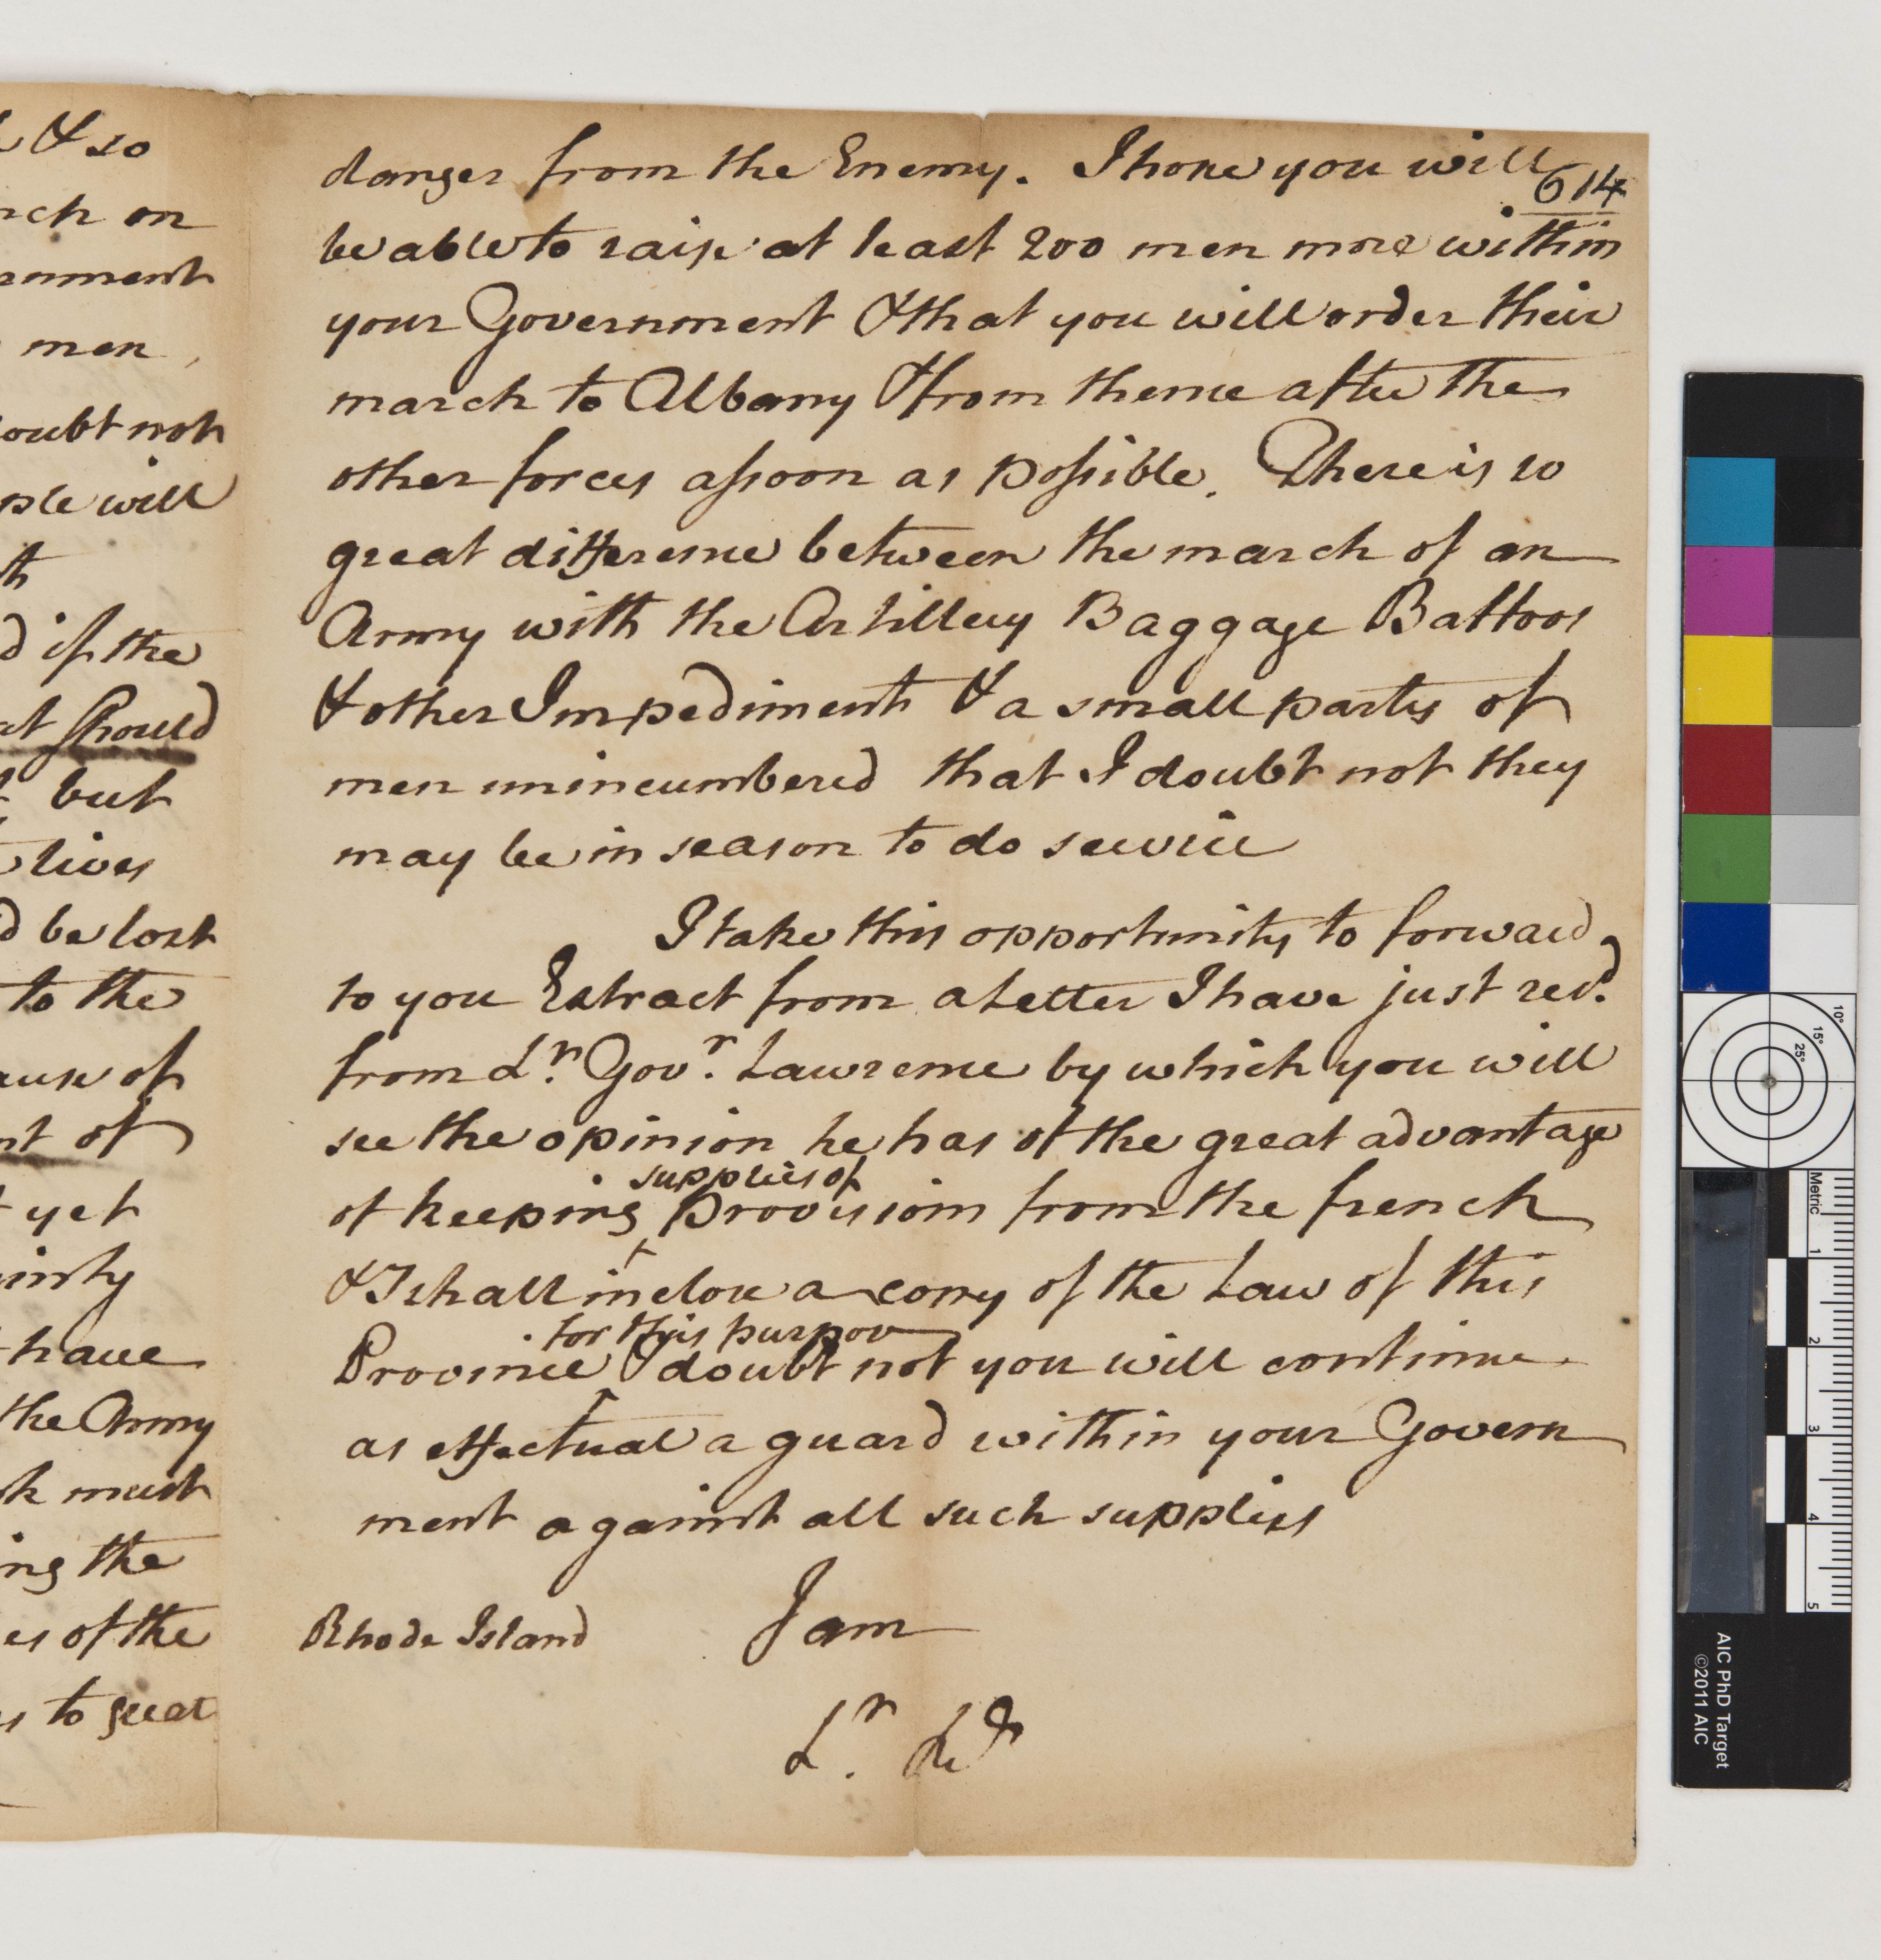 & so
rch on
ernment
men
doubt not
ple will
th
d if the
at should
but
lives
d be lost
to the
ause of
nt of
yet
ainty
have
the Army
k must
ing the
es of the
s to great
danger from the Enemy. I hope you will
614
be able to raise at least 200 men more within
your Government & that you will order their
march to Albany & from thence after the
other forces assoon as possible. There is so
great difference between the march of an
Army with the Artillery Baggage Battoos
& other Impediments & a small party of
men unincumbered that I doubt not they
may be in season to do service
I take this opportunity to forward
to you Extract from a Letter I have just recd.
from Lr. Govr. Lawrence by which you will
see the opinion he has of the great advantage
supplies of
of keeping ‸ provisions from the french
& I shall inclose a copy of the Law of this
for this purpose
Province ‸ I doubt not you will continue
as effectual a guard within your Govern
ment against all such supplies
Rhode Island I am
Lr.
AIC PhD Target
©2011 AIC
Metric
1
2
3
4
5
10°
15°
25°